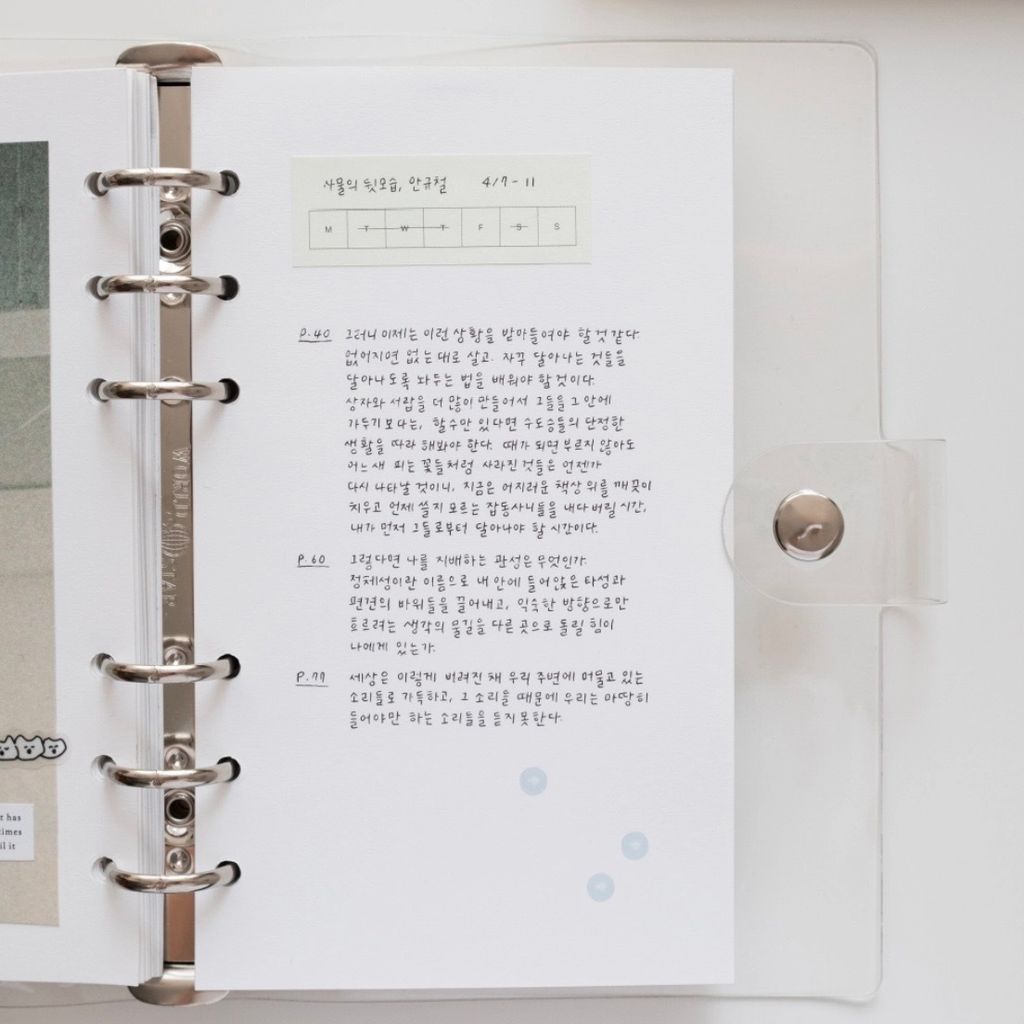 사물의 뒷모습, 안규철 4/7 - 11
M T W T F S S
P.40 그러니 이제는 이런 상황을 받아들여야 할 것 같다.
없어지면 없는 대로 살고. 자꾸 달아나는 것들을
달아나도록 놔두는 법을 배워야 할 것이다.
상자와 서랍을 더 많이 만들어서 그들을 그 안에
가두기보다는, 할 수만 있다면 수도승들의 단정한
생활을 따라 해봐야 한다. 때가 되면 부르지 않아도
어느새 피는 꽃들처럼 사라진 것들은 언젠가
다시 나타날 것이니, 지금은 어지러운 책상 위를 깨끗이
치우고 언제 쓸지 모르는 잡동사니들을 내다 버릴 시간,
내가 먼저 그들로부터 달아나야 할 시간이다.
P.60 그렇다면 나를 지배하는 관성은 무엇인가.
정체성이란 이름으로 내 안에 들어앉은 타성과
편견의 바위들을 끌어내고, 익숙한 방향으로만
흐르려는 생각의 물길을 다른 곳으로 돌릴 힘이
나에게 있는가.
P.77 세상은 이렇게 버려진 채 우리 주변에 머물고 있는
소리들로 가득하고, 그 소리들 때문에 우리는 마땅히
들어야만 하는 소리들을 듣지 못한다.
t has
times
il it